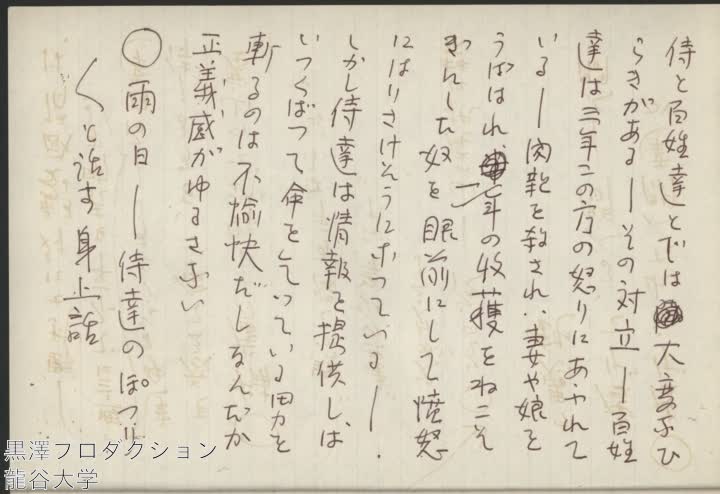 侍と百姓達とでは 大変なひ
らきがある―その対立―百姓
達は三年この方の怒りにあふれて
いる―肉親を殺され、妻や娘を
うばはれ 年の収獲をねこそ
ぎにした奴を眼前にして憤怒
にはりさけそうになつている―
しかし侍達は情報を提供しは
いつくばつて命をこいている男を
斬るのは不愉快だしなんだか
正義感がゆるさない
○雨の日―侍達のぽつり
〱と話す身上話
黒澤プロダクション
龍谷大学